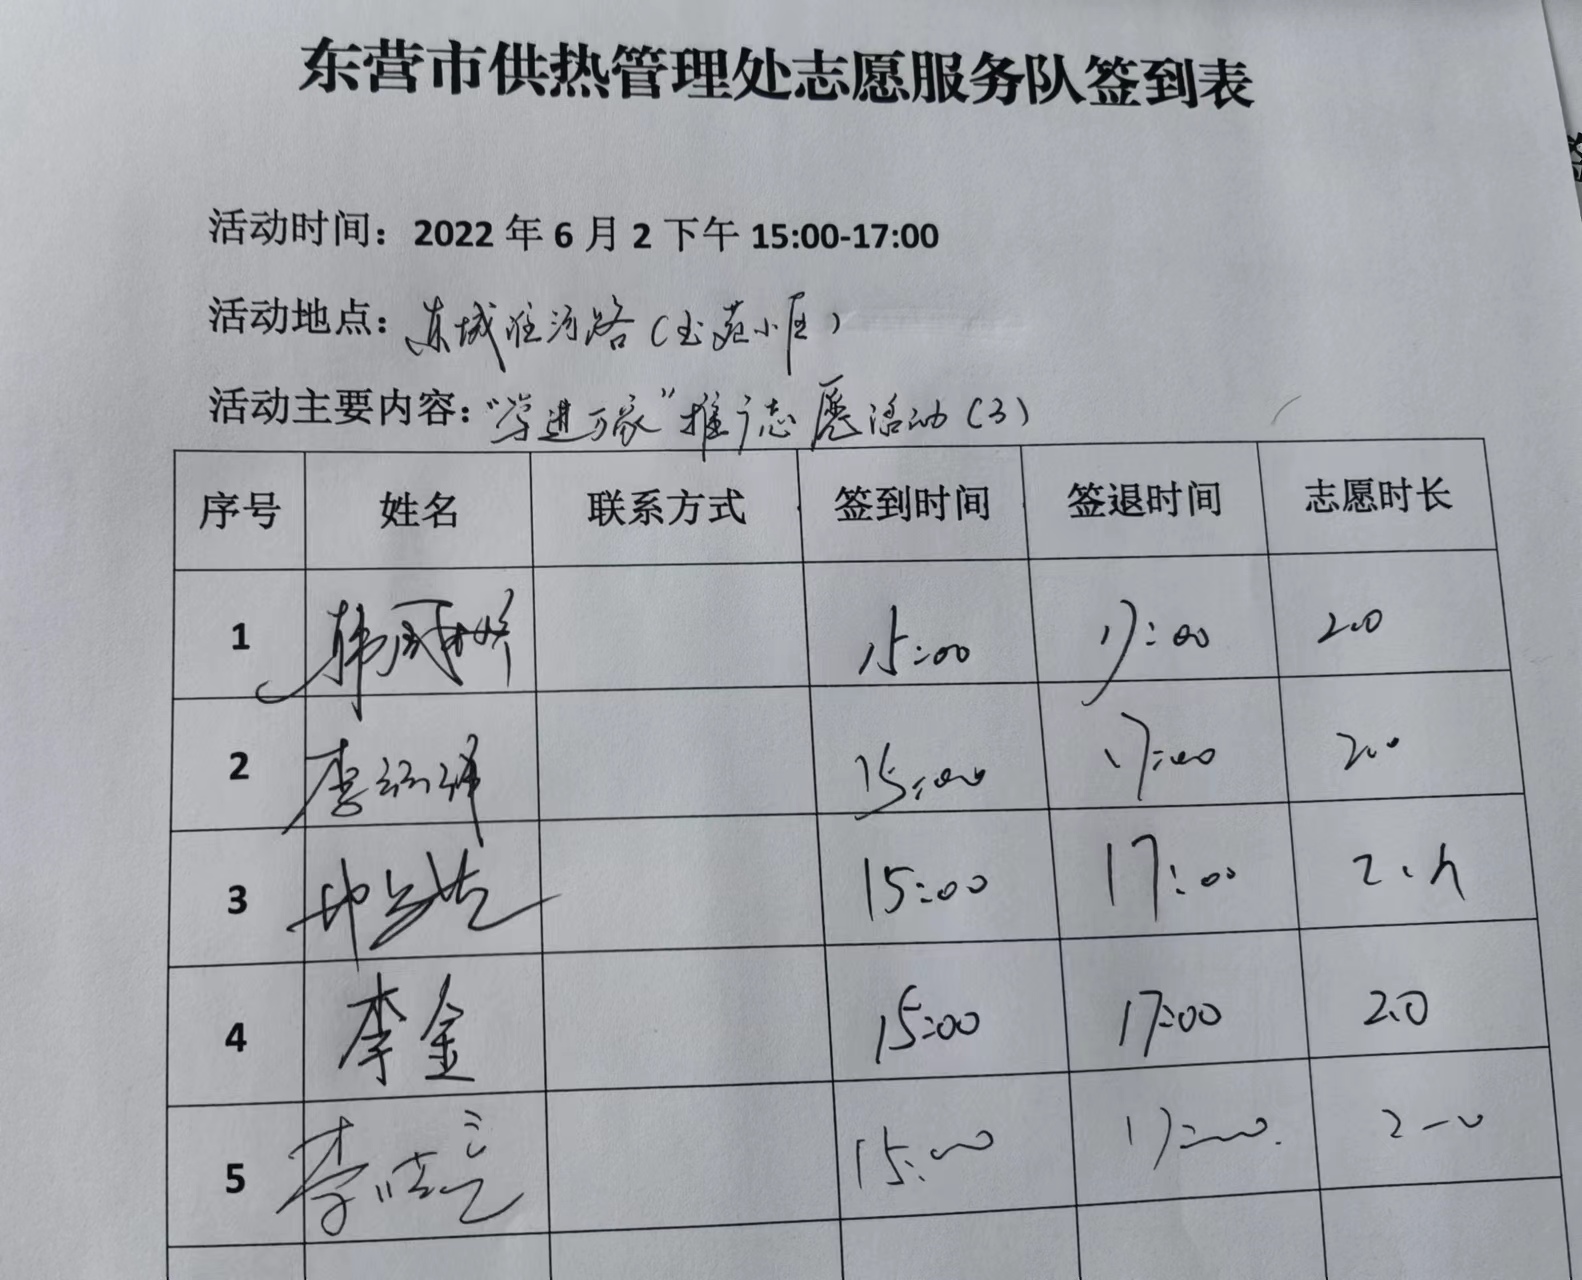 东营市供热管理处志愿服务队签到表
活动时间：2022 年 6 月 2 下午 15:00-17:00
活动地点：东城淮河路（玉苑小区）
活动主要内容："学进万家"推广志愿活动（3）
序号 姓名 联系方式 签到时间 签退时间 志愿时长
1 韩 15:00 17:00 2.0
2 李 15:00 17:00 2.0
3 15:00 17:00 2.h
4 李金 15:00 17:00 2.0
5 李 15:00 17:00 2.0